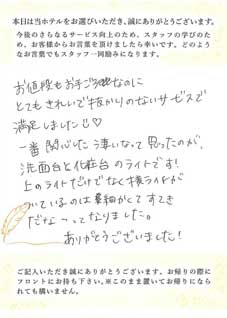 本日は当ホテルをお選びいただき、誠にありがとうございます。
今後のさらなるサービス向上のため、スタッフの学びのた
め、お客様からお言葉を頂けましたら幸いです。どのよう
なお言葉でもスタッフ一同励みになります。
お値段もお手ごろなのに
とてもきれいで抜かりのないサービスで
満足しました☺♡
一番関心した凄いなって思ったのが、
洗面台と化粧台のライトです!
上のライトだけでなく横ライトが
ついているのは素晴しくてすてき
だなってなりました。
ありがとうございました!
ご記入いただき誠にありがとうございます。お帰りの際に
フロントにお持ち下さい。※このまま置いてお帰りになら
れても構いません。